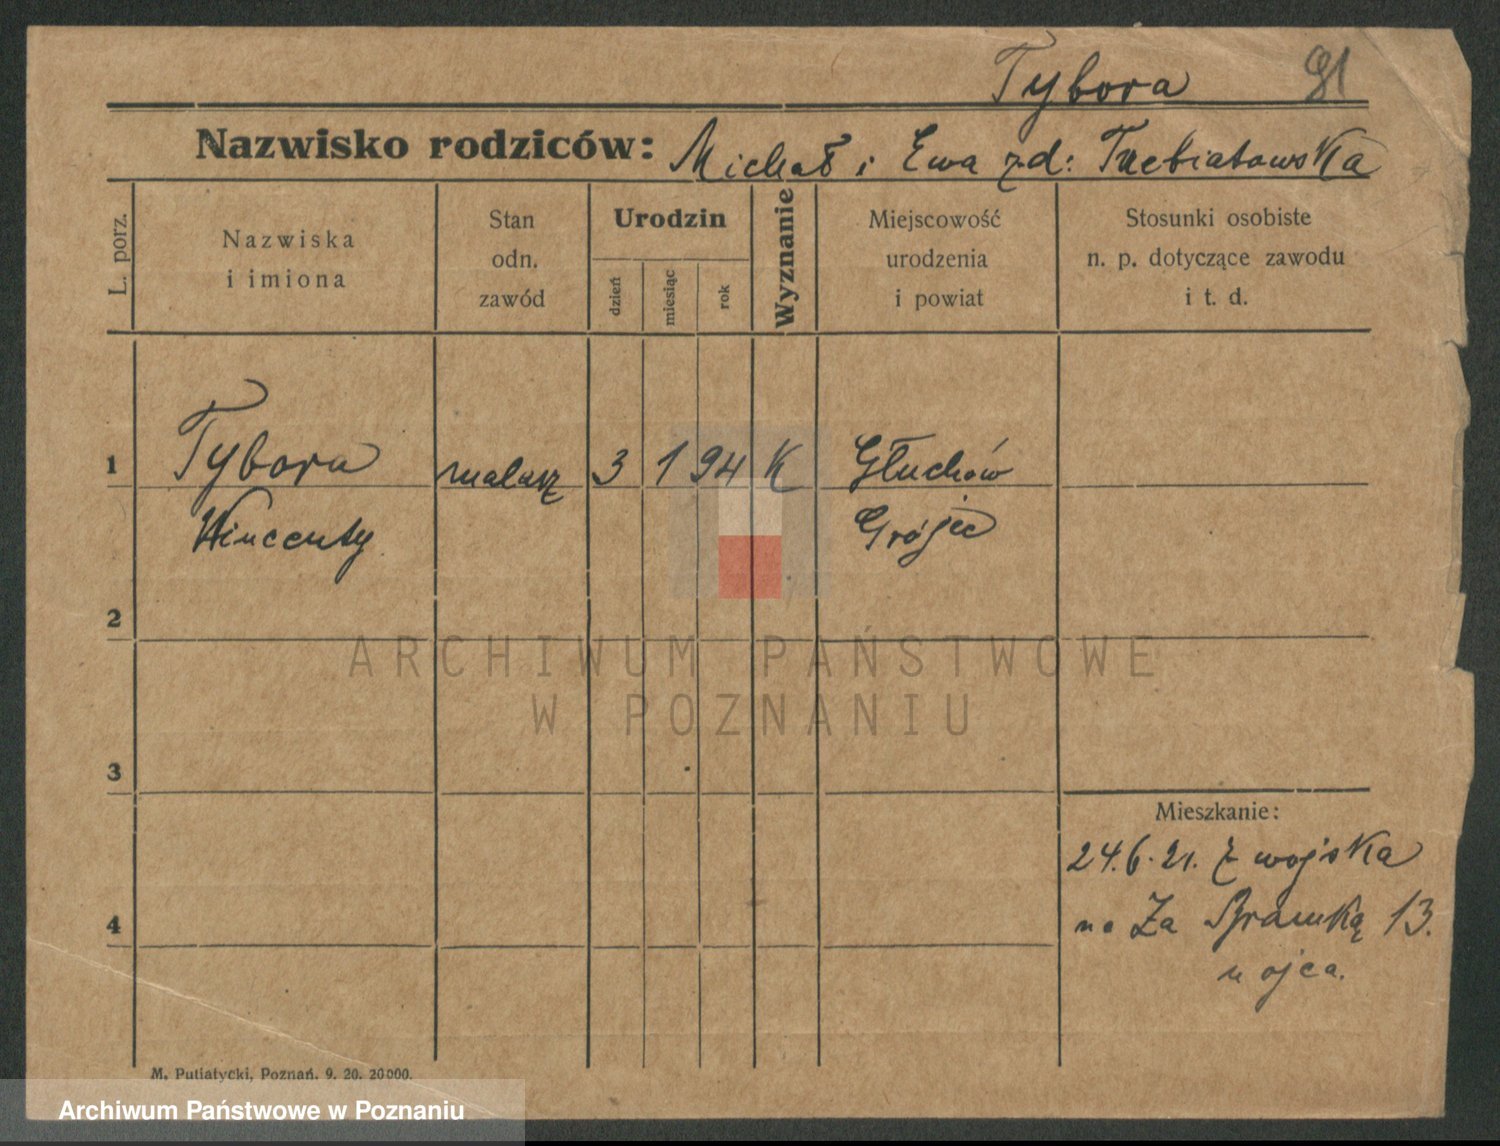 Tybora 91
Nazwisko rodziców: Michał i Ewa zd: Trebiatowska
L. porz.
Nazwiska
i imiona
Stan
odn.
zawód
Urodzin
dzień
miesiąc
rok
Wyznanie
Miejscowość
urodzenia
i powiat
Stosunki osobiste
n. p. dotyczące zawodu
i t. d.
1 Tybora malarz 3 1 94 K Głuchów
Wincenty Grójec
2
ARCHIWUM PAŃSTWOWE
W POZNANIU
3
Mieszkanie:
24.6.21. z wojska
na Za Bramką 13.
4
u ojca.
M. Putiatycki, Poznań. 9. 20. 20000.
Archiwum Państwowe w Poznaniu